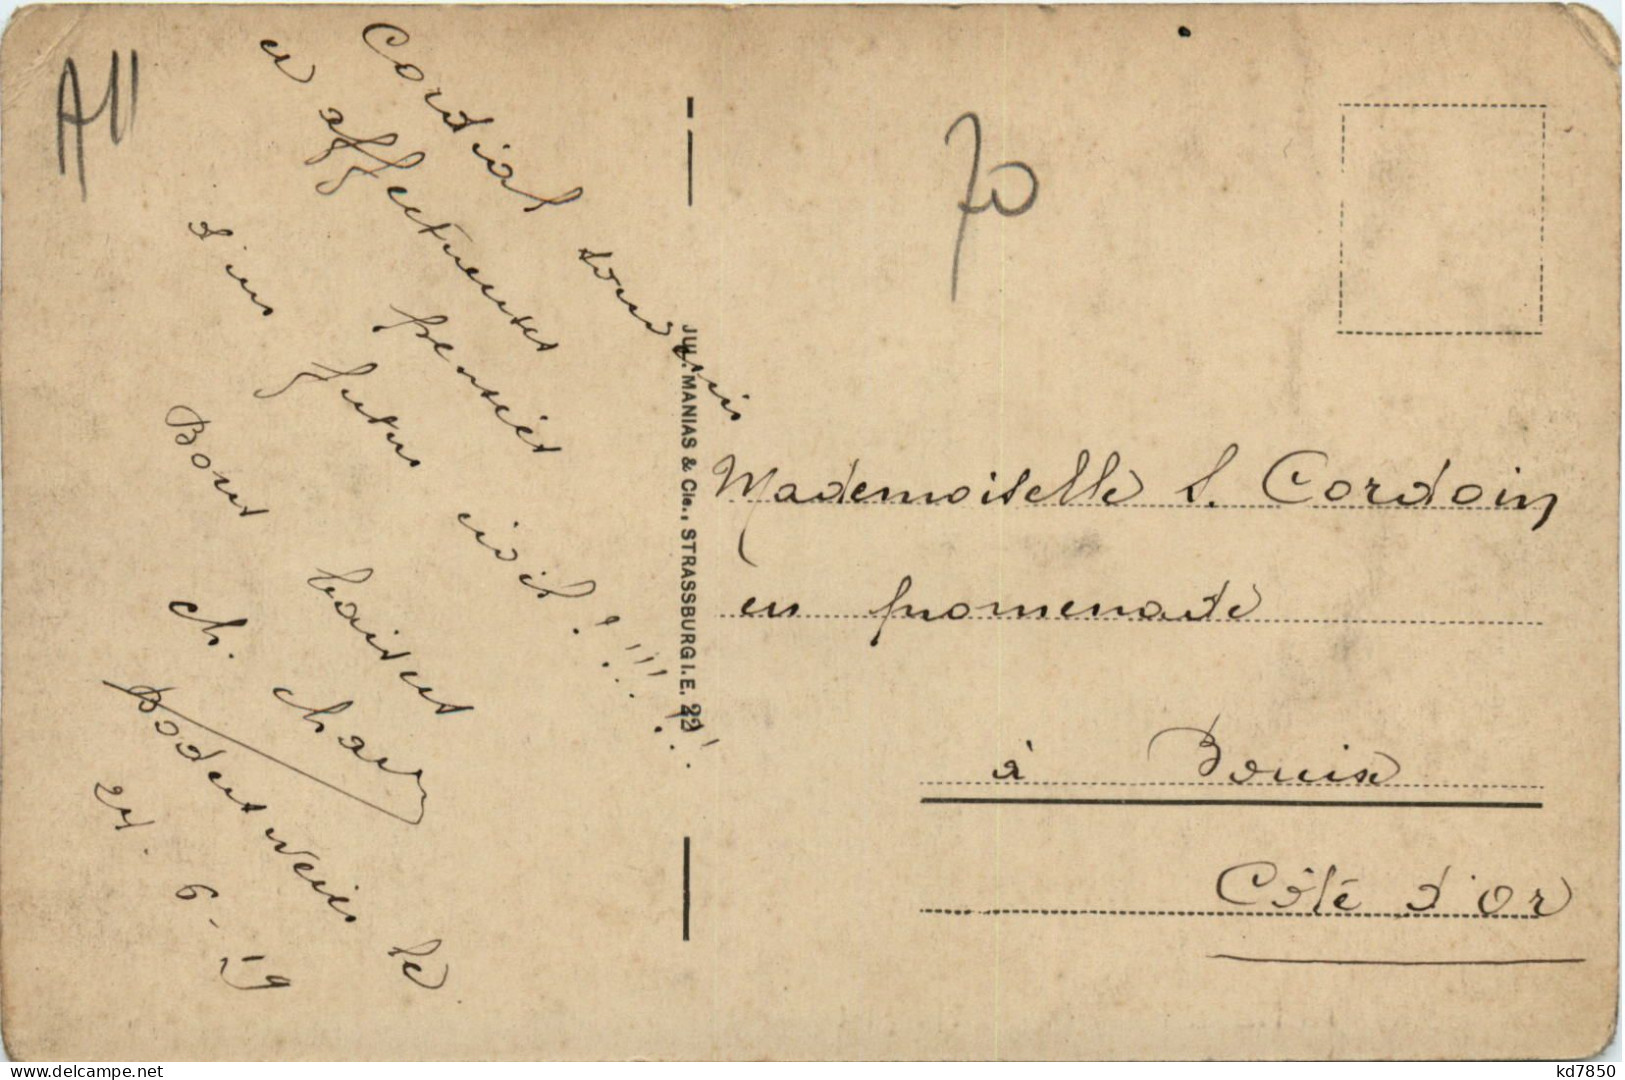 All
Cordial souvenir
et affectueuses pensées
d'un futur exilé !!!!!!
Bons baisers
Ch.
Bodenweiser le
24. 6. 19
JUL. MANIAS & Cie., STRASSBURG I. E.
70
Mademoiselle S. Cordoin
en promenade
à Bouix
Côte d'Or
delcampe.net
kd7850